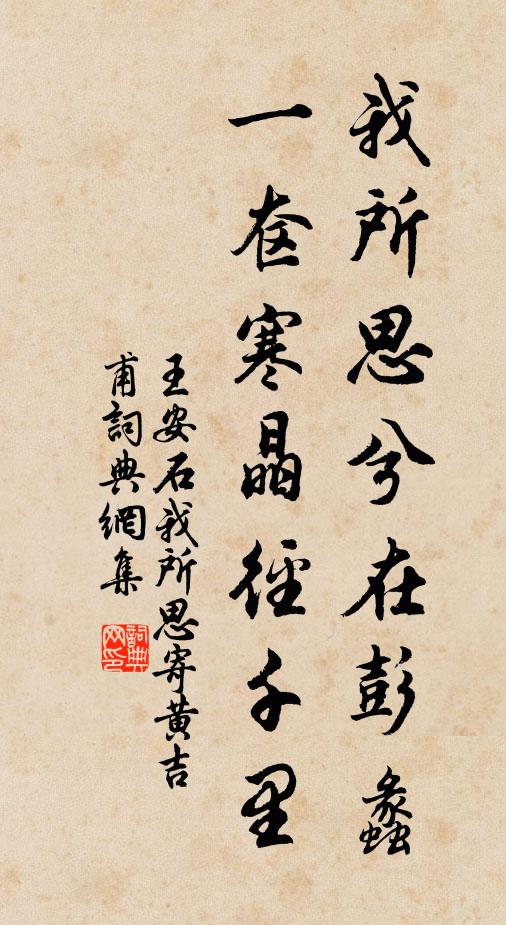 我所思兮在彭蠡
一奁寒晶徑千里
王安石我所思寄黄吉
甫詞典網集
詞典网印